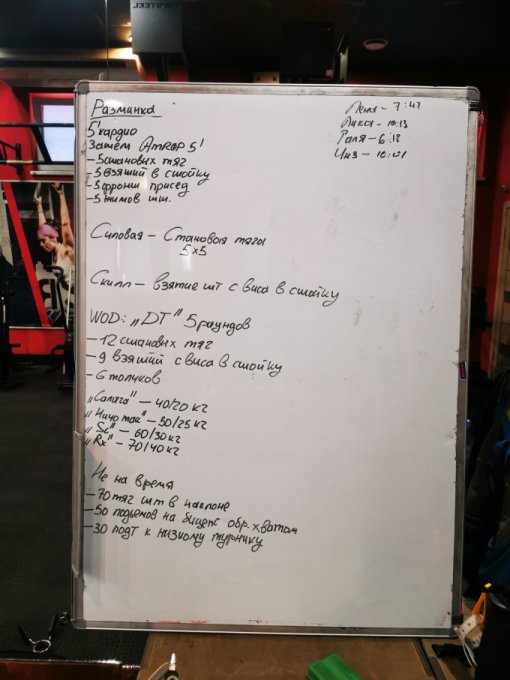 Разминка
5' кардио
Затем Amrap 5'
- 5 становых тяг
- 5 взятий в стойку
- 5 фронт присед
- 5 жимов шт.
Силовая - Становые тяги
5x5
Скилл - взятие шт с виса в стойку
WOD: „DT" 5 раундов
- 12 становых тяг
- 9 взятий с виса в стойку
- 6 толчков
„Салага" - 40/20 кг
„Ничо так" - 50/25 кг
„Sc" - 60/30 кг
„Rx" - 70/40 кг
Не на время
- 70 тяг шт в наклоне
- 50 подъемов на бицепс обр. хватом
- 30 подт к низкому турнику
Лена - 7:42
Лика - 10:13
Галя - 6:18
- 10:01